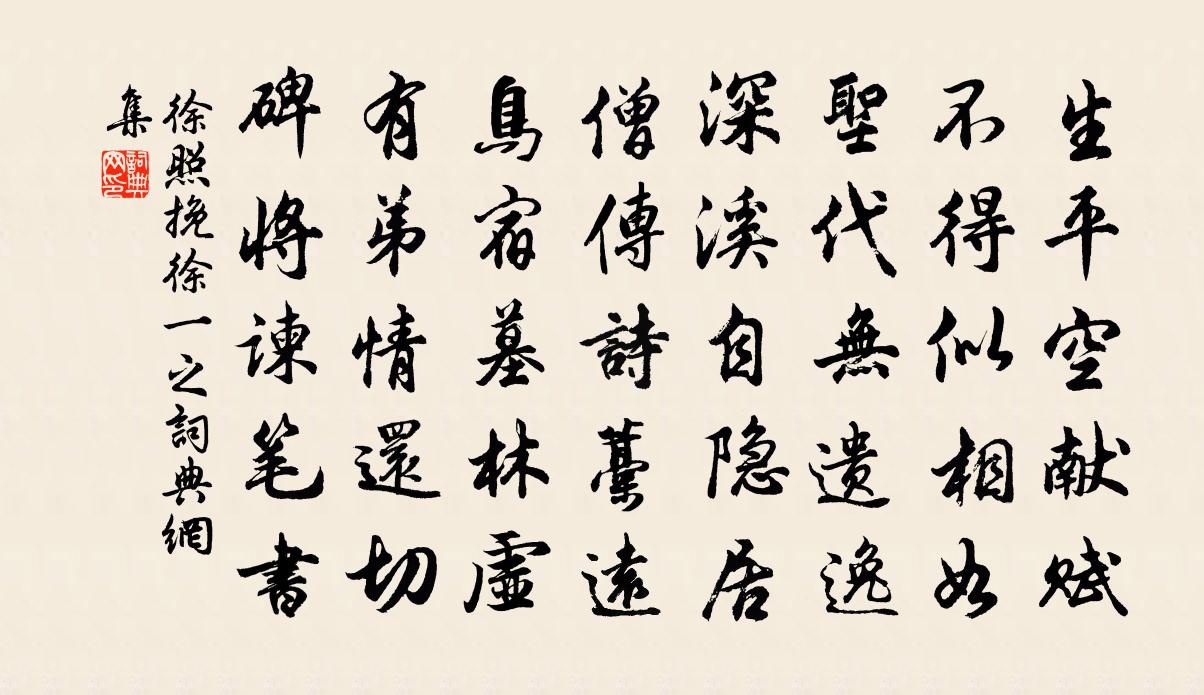 生平空献赋
不得似相如
聖代無遗逸
深溪自隐居
僧傳詩藁遠
鳥宿墓林虛
有弟情還切
碑将谏笔書
徐照挽徐一之詞典網
集
詞典
网印